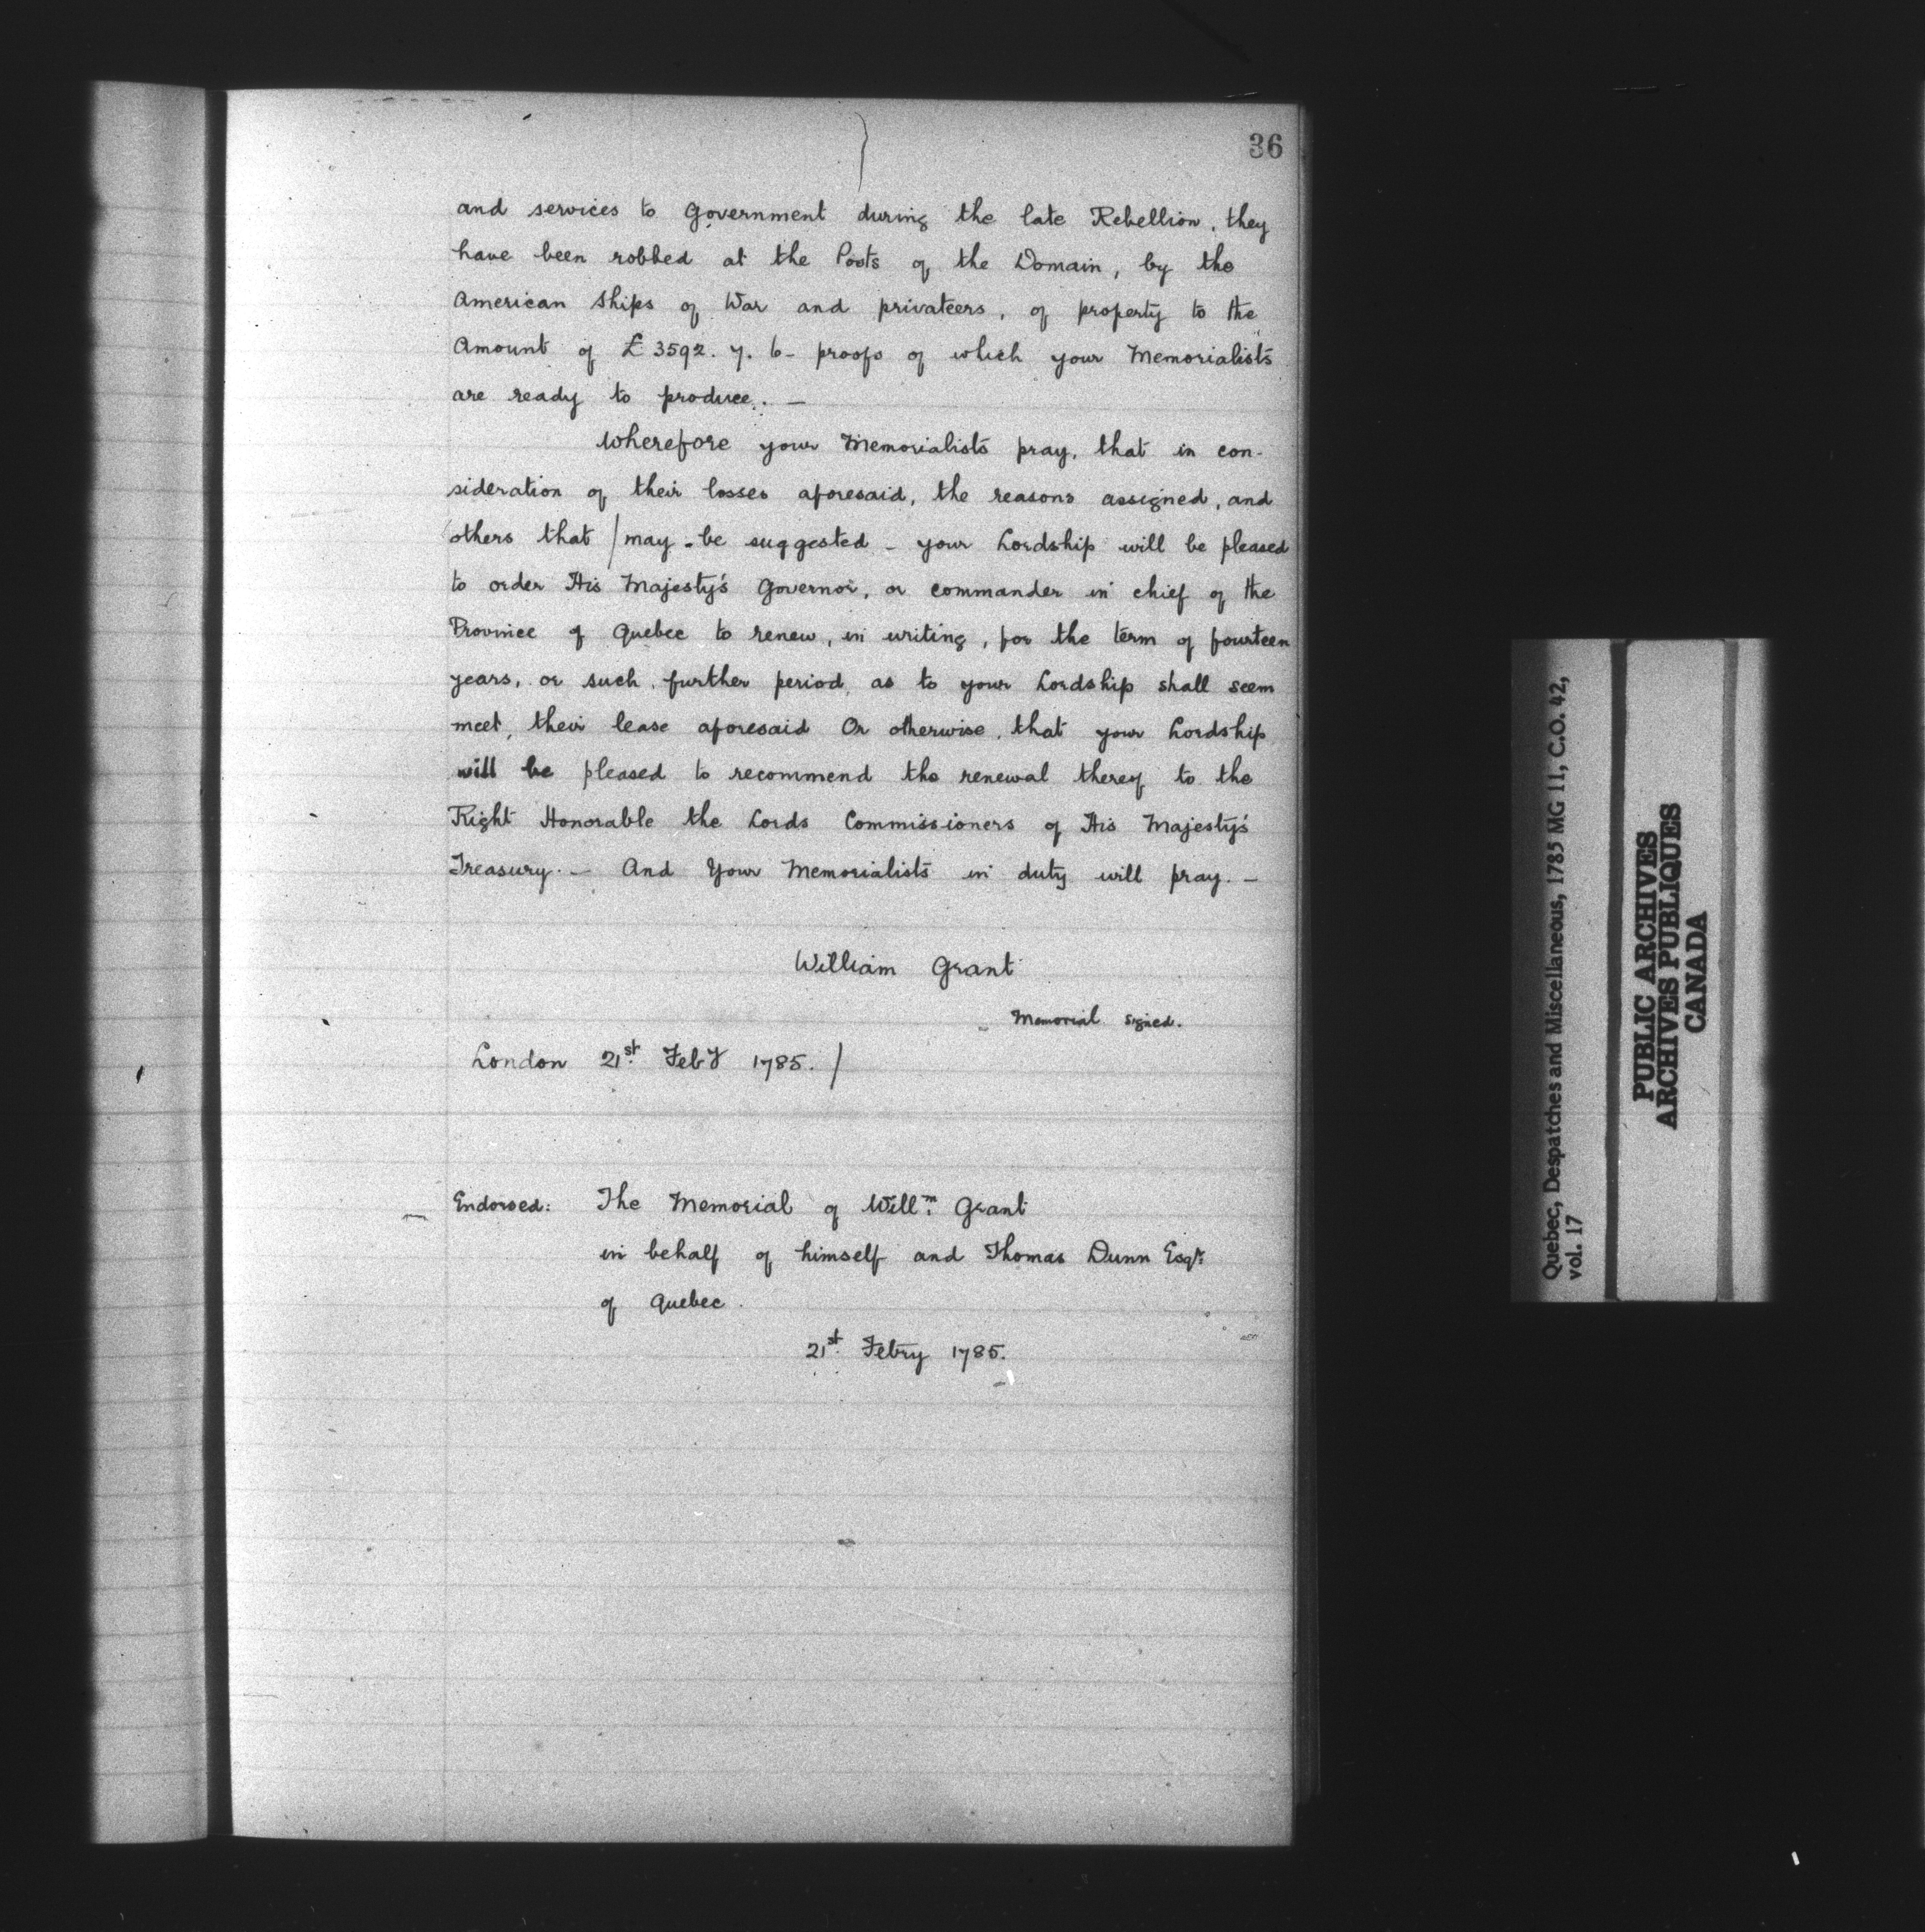 36
and services to Government during the late Rebellion, they
have been robbed at the Posts of the Domain, by the
American Ships of War and privateers, of property to the
Amount of £3592. 7. 6 - proofs of which your Memorialists
are ready to produce. —
Wherefore your Memorialists pray, that in con-
sideration of their losses aforesaid, the reasons assigned, and
others that / may be suggested - your Lordship will be pleased
to order His Majesty's Governor, or commander in chief of the
Province of Quebec to renew, in writing, for the term of fourteen
years, or such further period, as to your Lordship shall seem
meet, their lease aforesaid Or otherwise, that your Lordship
will be pleased to recommend the renewal thereof to the
Right Honorable the Lords Commissioners of His Majesty's
Treasury. — And Your Memorialists in duty will pray. —
William Grant
Memorial signed.
London 21st Feby 1785. /
Endorsed: The Memorial of Willm Grant
in behalf of himself and Thomas Dunn Esqr.
of Quebec.
21st Febry 1785.
Quebec, Despatches and Miscellaneous, 1785 MG 11, C.O. 42,
vol. 17
PUBLIC ARCHIVES
ARCHIVES PUBLIQUES
CANADA